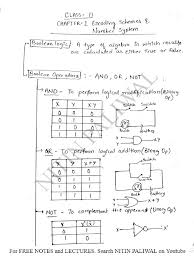 CLASS- 11
CHAPTER-2 Encoding Schemes &
Number System
Boolean logic → A type of algebra in which results
are calculated as either True or False.
Boolean Operators :- AND, OR, NOT
AND - To perform logical multiplication (Binary Op)
X Y X.Y
0 0 0
0 1 0
1 0 0
1 1 1
OR - To perform logical addition (Binary Op)
X Y X+Y
0 0 0
0 1 1
1 0 1
1 1 1
NOT - To complement the operand (Unary Op)
X X'
0 1
1 0
NITIN PALIWAL
For FREE NOTES and LECTURES. Search NITIN PALIWAL on Youtube